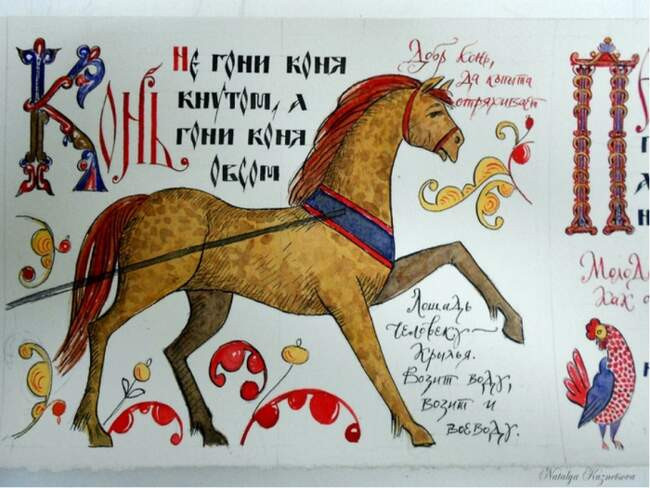 Конь.
Не гони коня
кнутом, а
гони коня
овсом
Добр конь,
да копыта
отряхивает
Лошадь
человеку
крылья.
Возит воду,
возит и
воеводу.
П
Молод
как
Natalya Kuznetsova